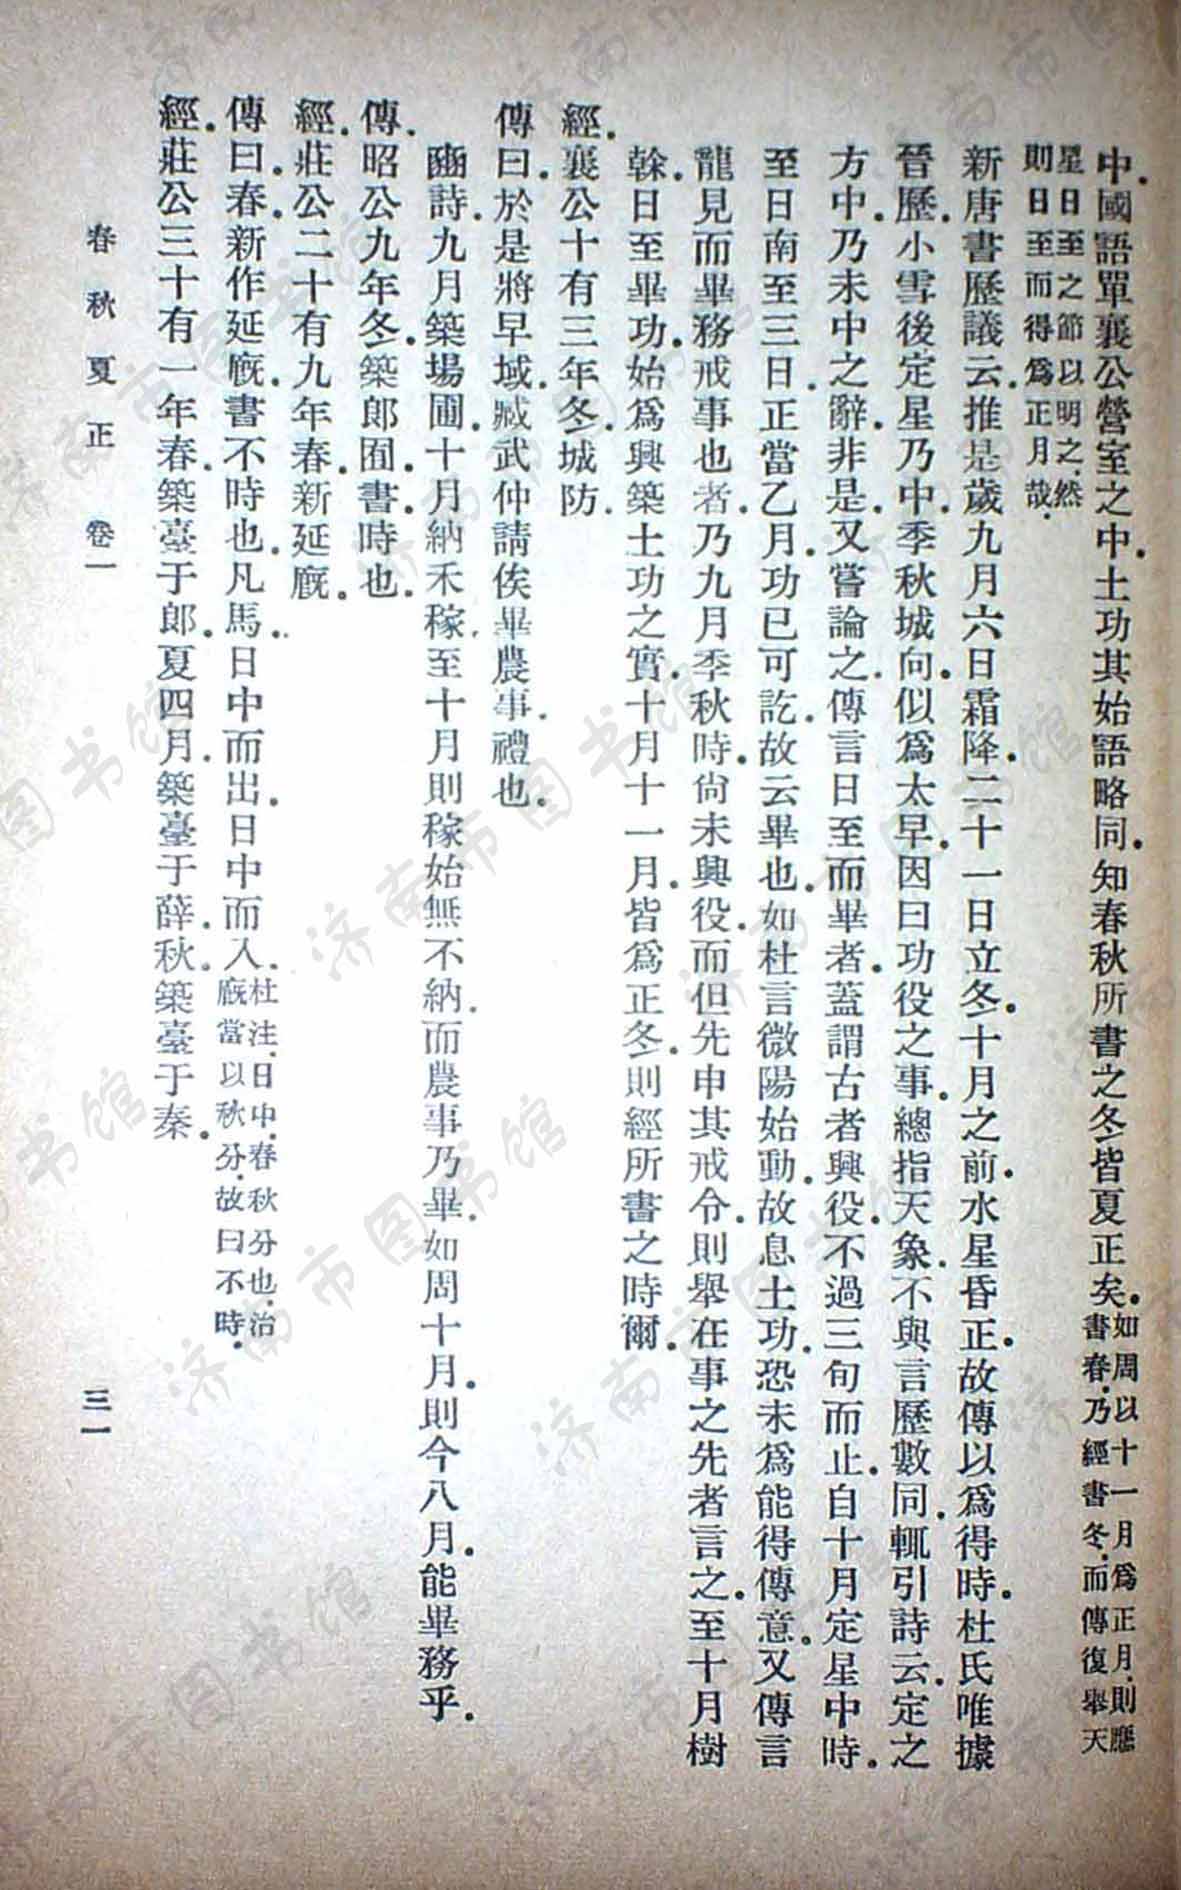 中.國語單襄公營室之中.土功其始語略同.知春秋所書之冬皆夏正矣.如周以十一月爲正月.則應
書春.乃經書冬.而傳復舉天
星日至之節以明之.然
則日至而得爲正月哉.
新唐書歷議云.推是歲九月六日霜降.二十一日立冬.十月之前.水星昏正.故傳以爲得時.杜氏唯據
晉歷.小雪後定星乃中.季秋城向.似爲太早.因曰功役之事.總指天象.不與言歷數同.輒引詩云.定之
方中.乃未中之辭.非是.又嘗論之.傳言日至而畢者.蓋謂古者興役.不過三旬而止.自十月定星中時.
至日南至三日.正當乙月.功已可訖.故云畢也.如杜言微陽始動.故息土功.恐未爲能得傳意.又傳言
龍見而畢務戒事也者.乃九月季秋時.尙未興役.而但先申其戒令.則舉在事之先者言之.至十月樹
榦.日至畢功.始爲興築土功之實.十月十一月.皆爲正冬.則經所書之時爾.
經.襄公十有三年冬.城防.
傳曰.於是將早域.臧武仲請俟畢農事.禮也.
豳詩.九月築場圃.十月納禾稼.至十月則稼始無不納.而農事乃畢.如周十月.則今八月.能畢務乎.
傳.昭公九年冬.築郎囿.書.時也.
經.莊公二十有九年春.新延廄.
傳曰.春.新作延廄.書不時也.凡馬.日中而出.日中而入.杜注.日中.春秋分也.治
廄當以秋分.故曰不時.
經.莊公三十有一年春.築臺于郎.夏四月.築臺于薛.秋.築臺于秦.
春秋夏正 卷一 三一
济南市图书馆